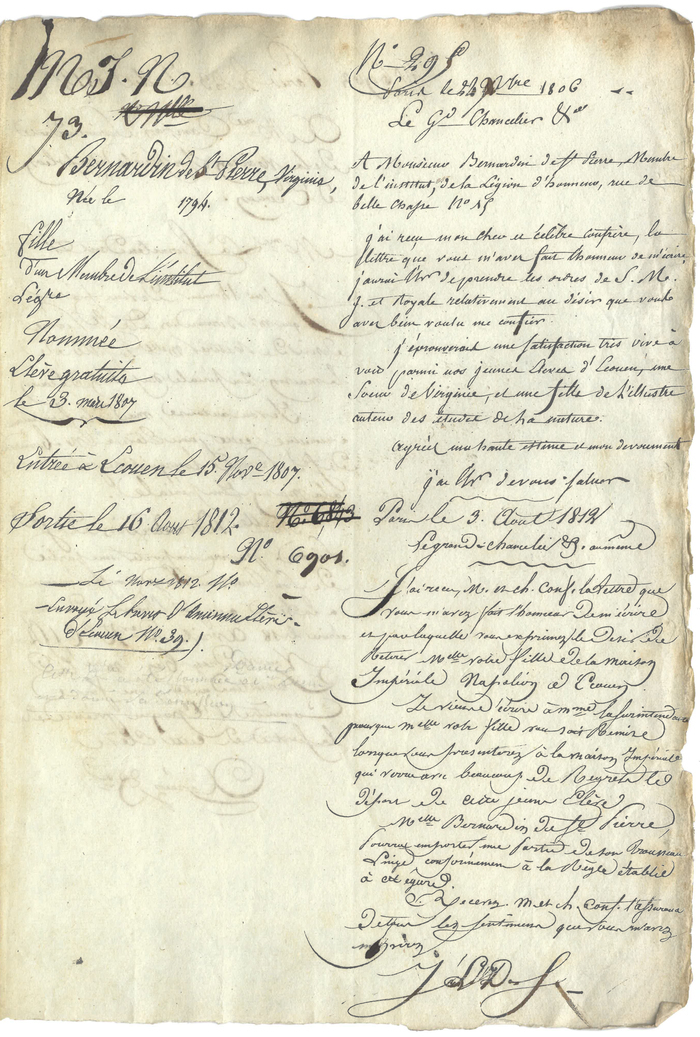 M J. N
73.
Bernardin de St Pierre, Virginie,
Née le 1794.
fille
d'un Membre de L'institut
Légre
Nommée
Elève gratuite
le 3. mars 1807
Entrée à Ecouen le 15. Novre 1807.
Sortie le 16 Aout 1812.
No 6901.
Le Nvre 1812. No
Envoyé Le brevet d'ancienne Elève
d'Ecouen No. 39.
No 295
Paris le 24 1806
Le Gd Chancelier &a
A Monsieur Bernardin de St Pierre, Membre
de l'institut, de la Légion d'honneur, rue de
belle chasse No 15
j'ai reçu mon cher et célèbre confrère, la
lettre que vous m'avez fait l'honneur de m'écrire
j'aurai l'hr de prendre les ordres de S. M.
J. et Royale relativement au désir que voulu
avez bien voulu me confier.
j'éprouverai une satisfaction très vive à
voir parmi nos jeunes Elèves d'Ecouen, une
Soeur de Virginie, et une fille de l'illustre
auteur des études de la nature.
agréez ma haute estime et mon dévouement
j'ai l'hr de vous saluer
Paris le 3. Aout 1812
Le grand-chancelier &. au même
J'ai reçu, M. et ch. Conf. la lettre que
vous m'avez fait l'honneur de m'écrire
et par laquelle vous exprimez le Desir de
Retirer Melle votre fille de la maison
Impériale Napoléon d'Ecouen.
Je viens d'écrire à Mme la Surintendante
pour que Melle votre fille vous soit Remise
lorsque vous présenterez à la maison Impériale
qui verra avec beaucoup de Regrets le
départ de cette jeune Elève
Melle Bernardin de St Pierre
pourra emporter une Partie de son Trousseau
Linge conformément à la Règle établie
à cet égard.
Recevez. M et ch. Conf. l'assurance
de tous les sentimens que vous m'avez
inspirés.